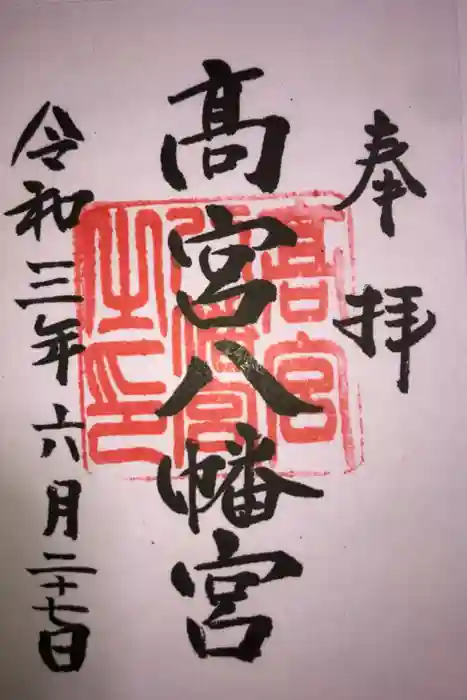 奉拝
髙宮八幡宮
髙宮
八幡宮
之印
令和三年六月二十七日